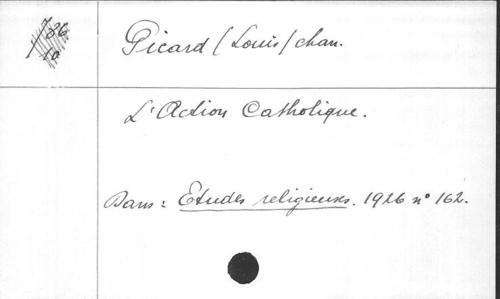 786
10
Picard (Louis) chan.
L'Action Catholique.
Dans : Etudes religieuses. 1926 n° 162.